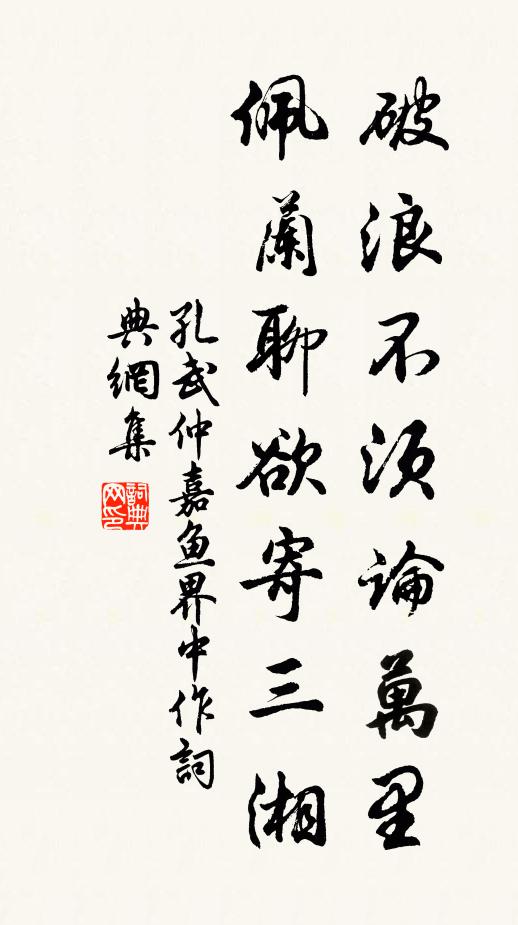 破浪不須論萬里
佩蘭聊欲寄三湘
孔武仲嘉魚界中作詞
典網集
詞典
网印